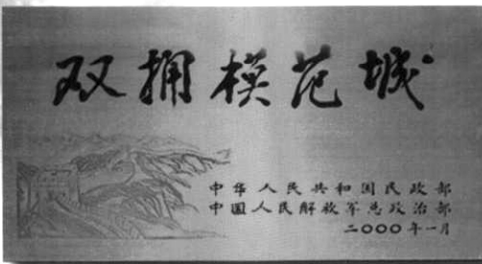 双拥模范城
中华人民共和国民政部
中国人民解放军总政治部
二〇〇〇年一月